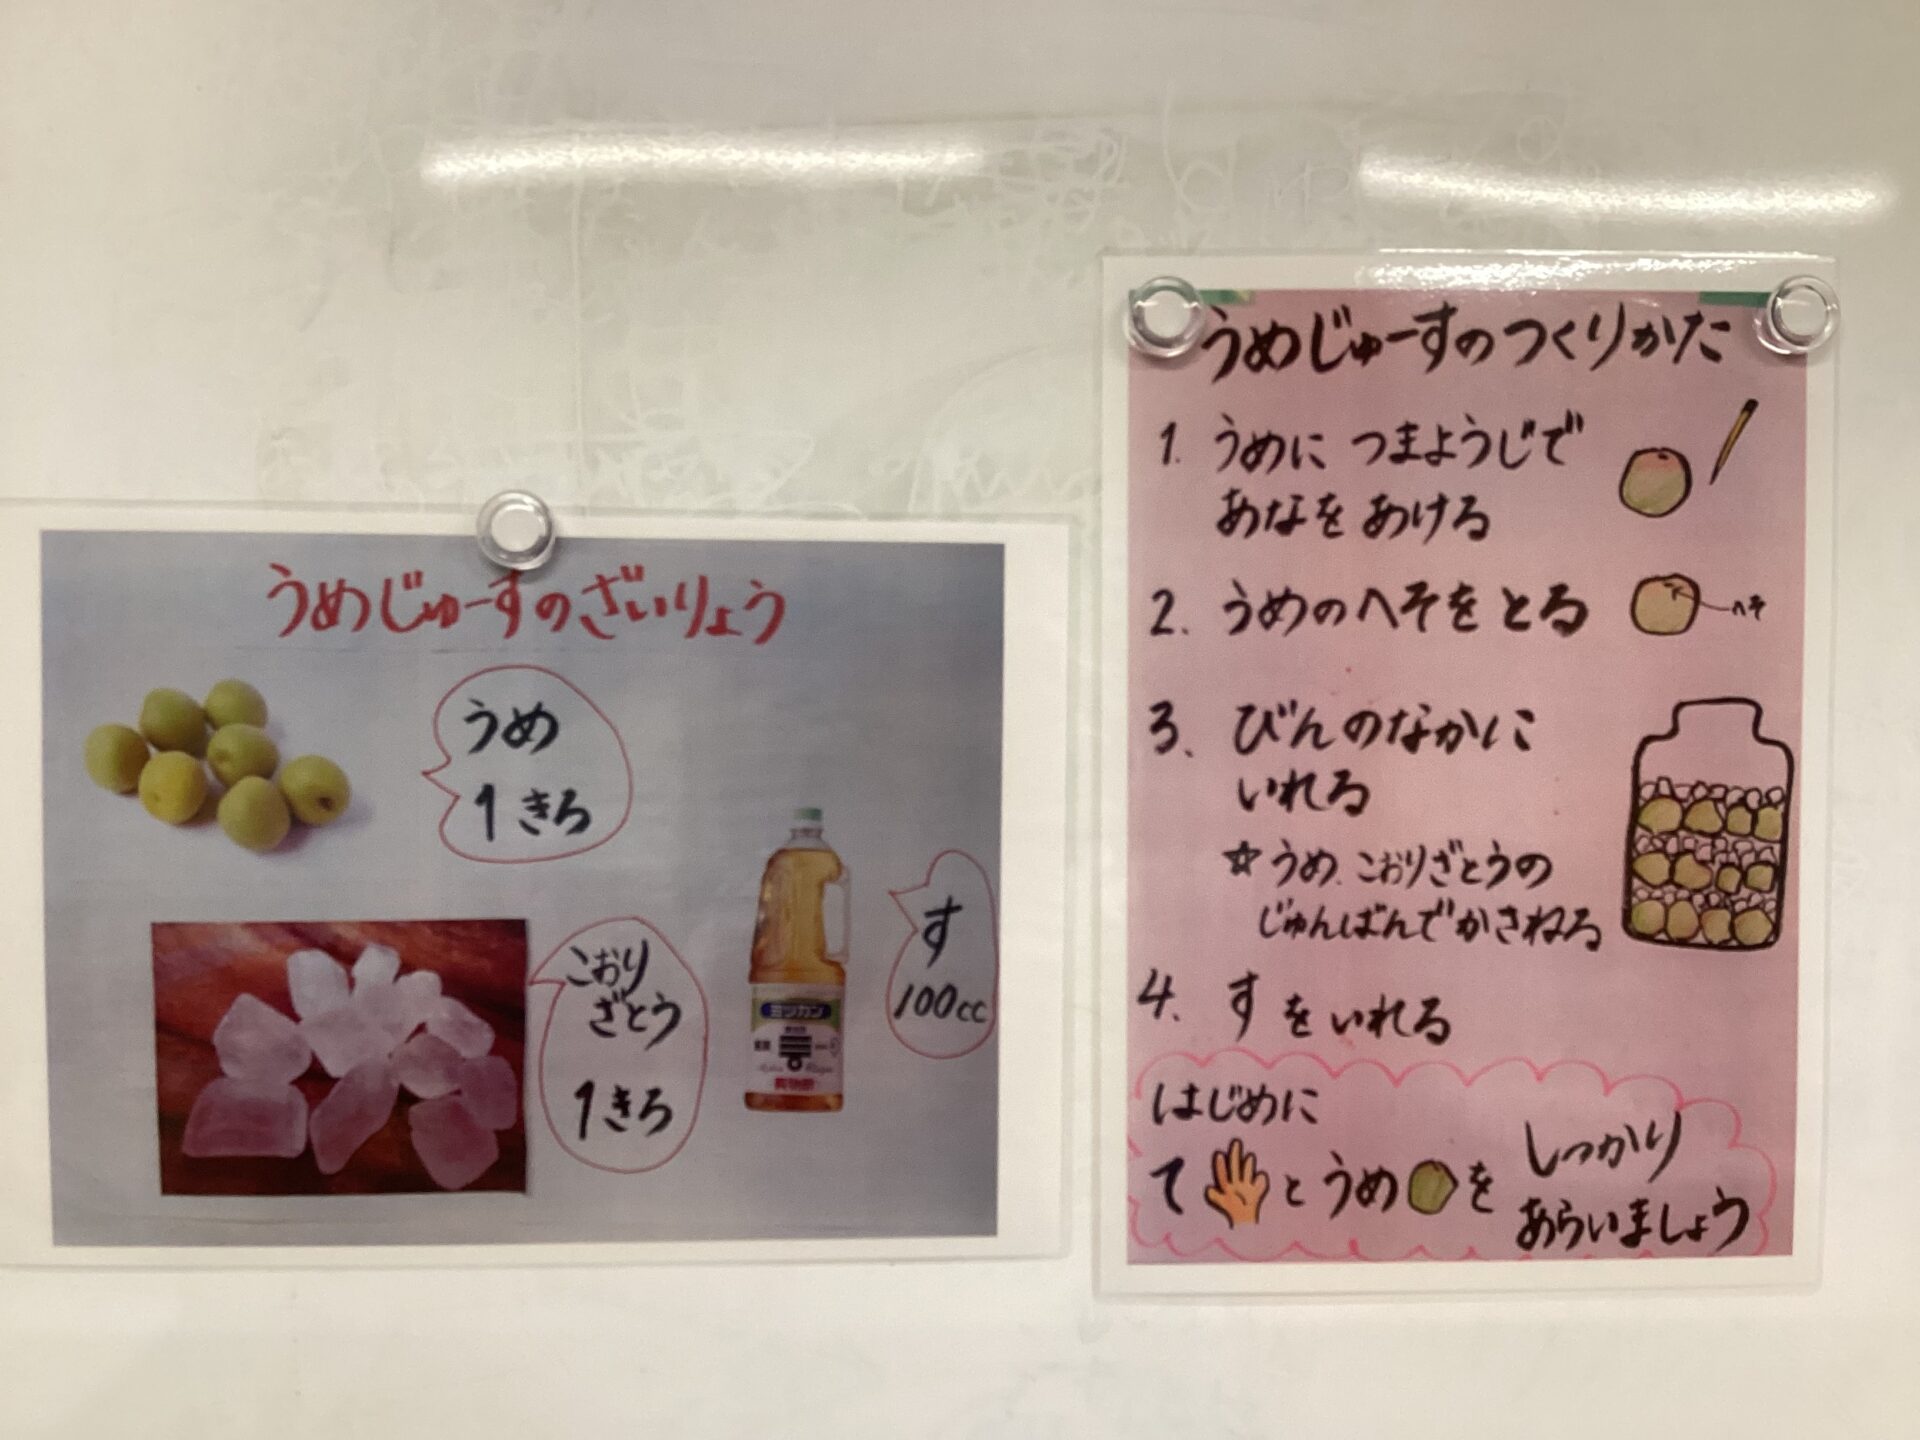 うめじゅーすのざいりょう
うめ
1きろ
こおり
ざとう
1きろ
す
100cc
ミツカン
穀物酢
うめじゅーすのつくりかた
1. うめに つまようじで
あなを あける
2. うめのへそを とる
へそ
3. びんのなかに
いれる
☆うめ、こおりざとうの
じゅんばんでかさねる
4. す を いれる
はじめに
て とうめ を しっかり
あらいましょう